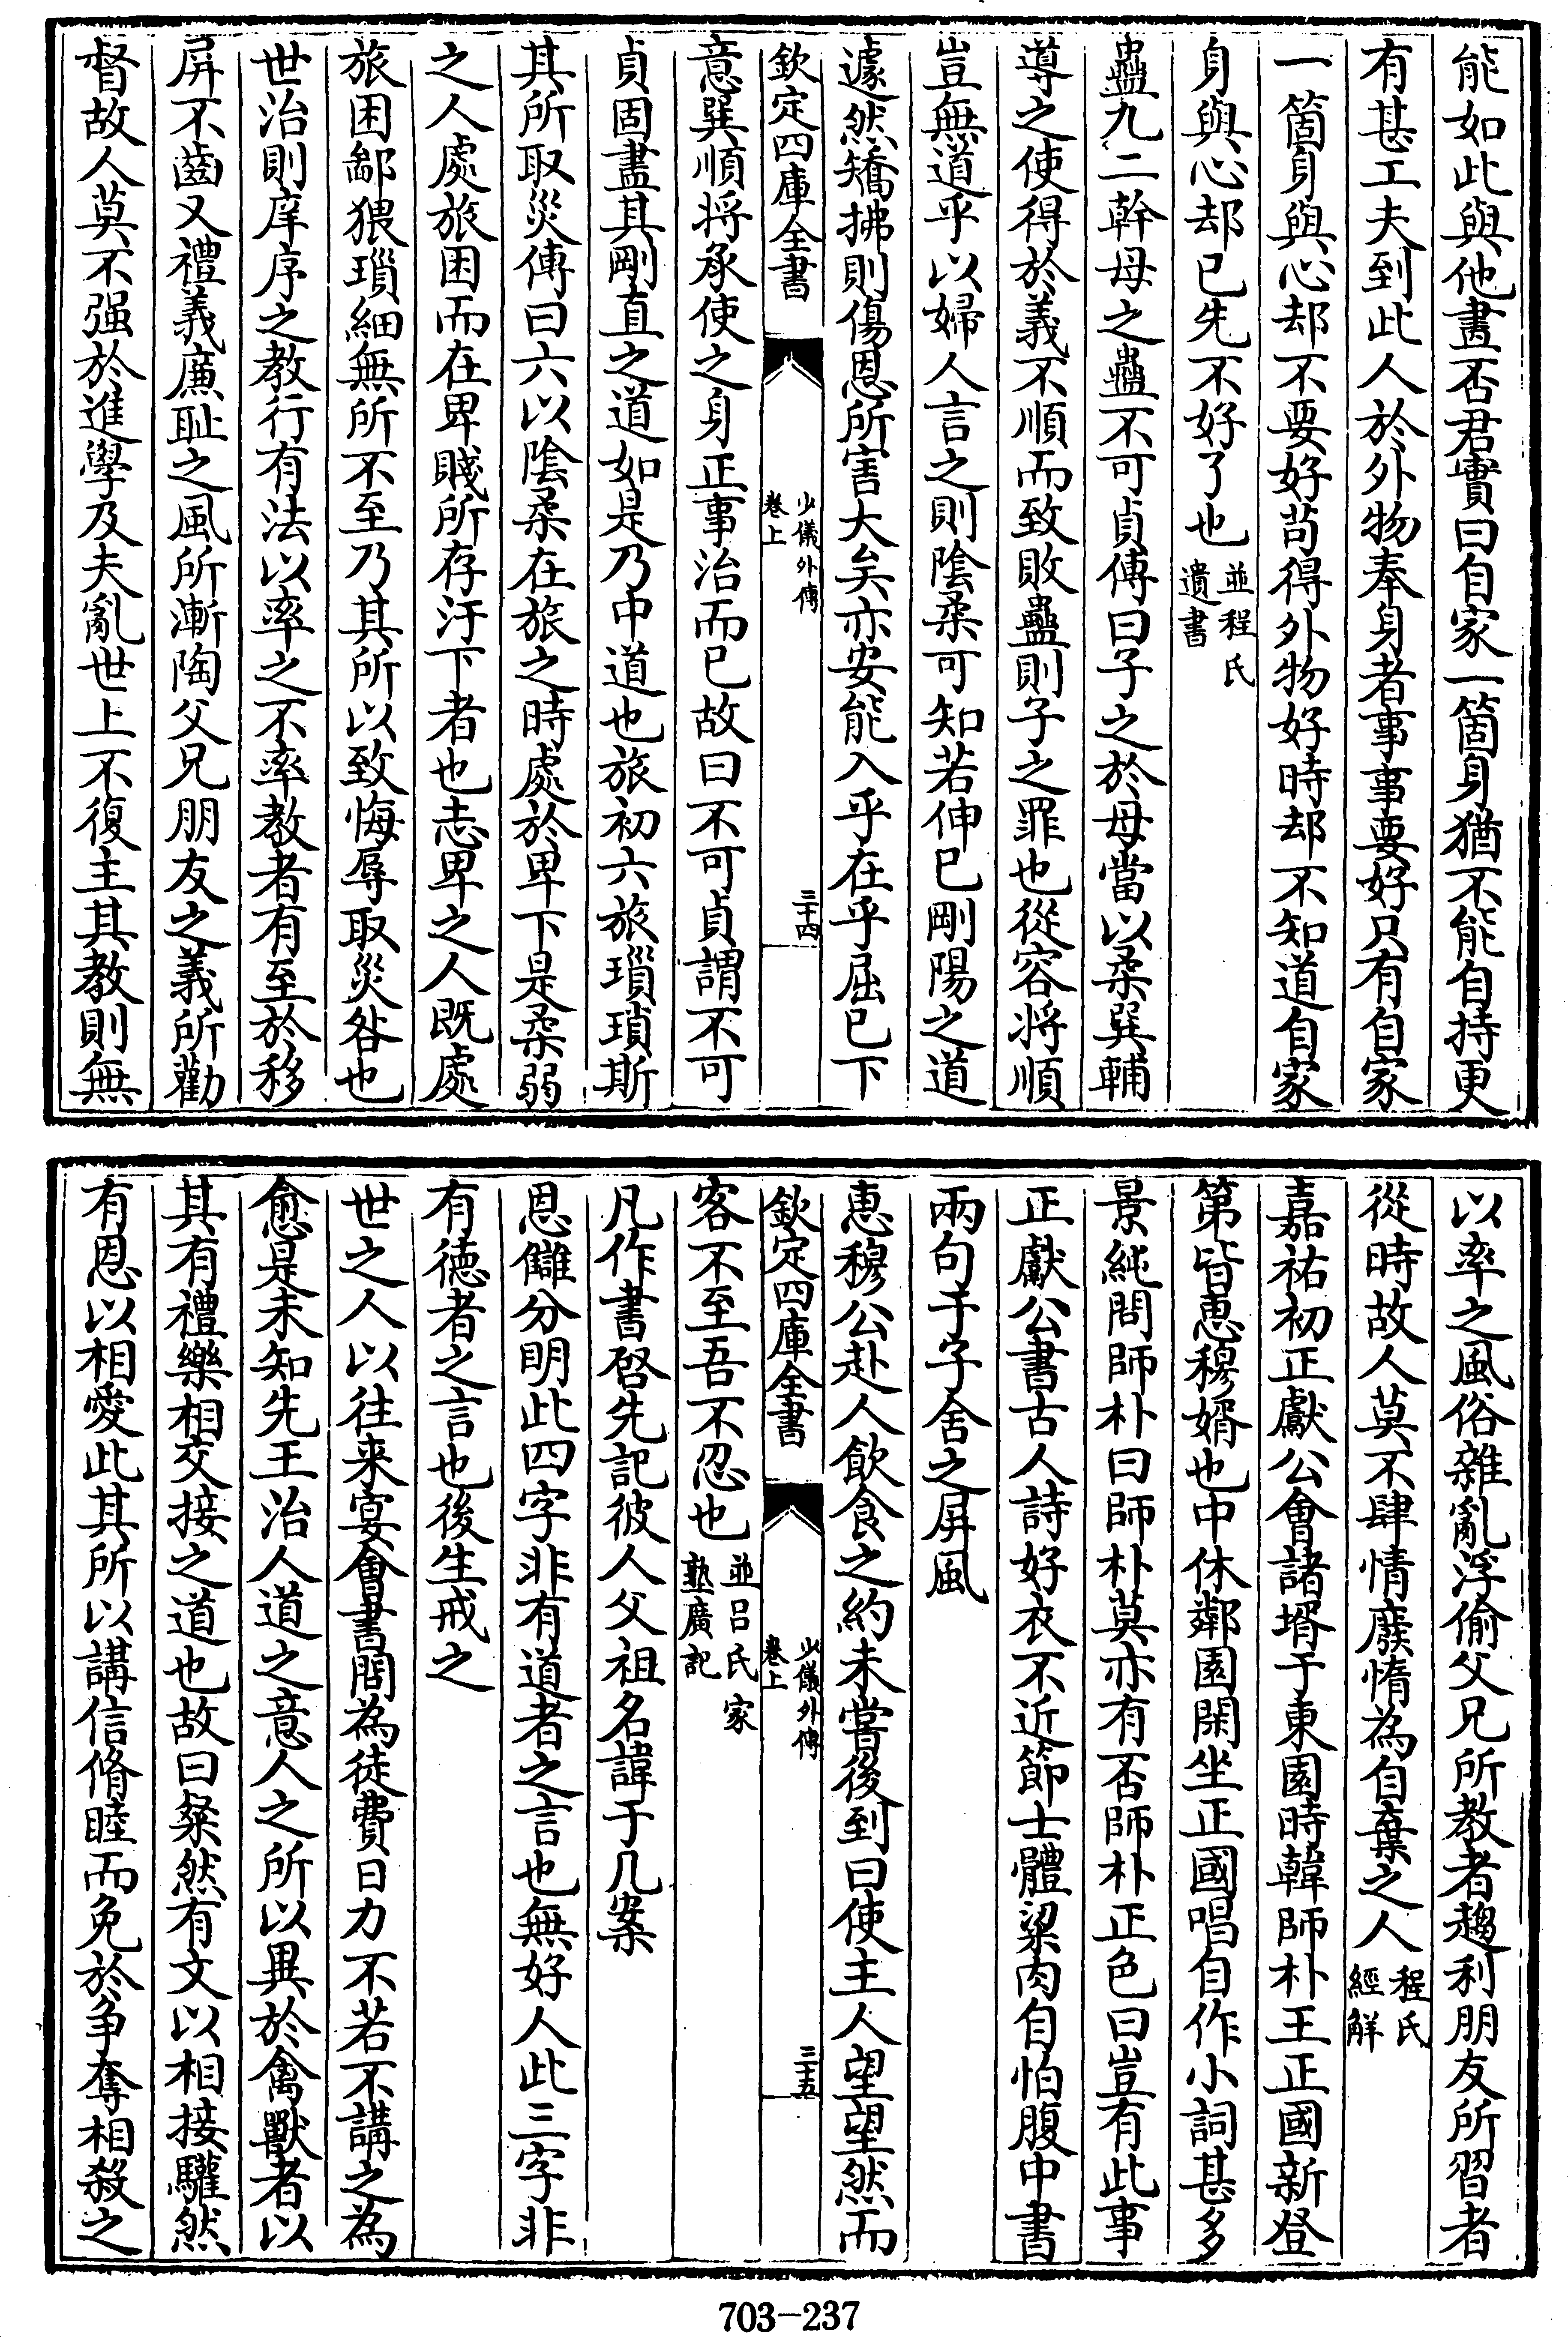 能如此與他畫否君實曰自家一箇身猶不能自持更
有甚工夫到此人於外物奉身者事事要好只有自家
一箇身與心却不要好苟得外物好時却不知道自家
身與心却已先不好了也並程氏遺書
蠱九二幹母之蠱不可貞傳曰子之於母當以柔巽輔
導之使得於義不順而致敗蠱則子之罪也從容將順
豈無道乎以婦人言之則陰柔可知若伸已剛陽之道
遽然矯拂則傷恩所害大矣亦安能入乎在乎屈已下
欽定四庫全書 少儀外傳卷上 三十四
意巽順將承使之身正事治而已故曰不可貞謂不可
貞固盡其剛直之道如是乃中道也旅初六旅瑣瑣斯
其所取災傳曰六以陰柔在旅之時處於卑下是柔弱
之人處旅困而在卑賤所存汙下者也志卑之人既處
旅困鄙猥瑣細無所不至乃其所以致悔辱取災咎也
世治則庠序之教行有法以率之不率教者有至於移
屏不齒又禮義廉耻之風所漸陶父兄朋友之義所勸
督故人莫不强於進學及夫亂世上不復主其教則無
以率之風俗雜亂浮偷父兄所教者趨利朋友所習者
從時故人莫不肆情廢惰為自棄之人程氏經解
嘉祐初正獻公會諸壻于東園時韓師朴王正國新登
第皆惠穆婿也中休鄰園閑坐正國唱自作小詞甚多
景純問師朴曰師朴莫亦有否師朴正色曰豈有此事
正獻公書古人詩好衣不近節士體梁肉自怕腹中書
兩句于字舍之屏風
惠穆公赴人飲食之約未嘗後到曰使主人望望然而
欽定四庫全書 少儀外傳卷上 三十五
客不至吾不忍也並吕氏家塾廣記
凡作書啓先記彼人父祖名諱于几案
恩讎分明此四字非有道者之言也無好人此三字非
有德者之言也後生戒之
世之人以往来宴會書問為徒費日力不若不講之為
愈是未知先王治人道之意人之所以異於禽獸者以
其有禮樂相交接之道也故曰粲然有文以相接驩然
有恩以相愛此其所以講信脩睦而免於争奪相殺之
703-237